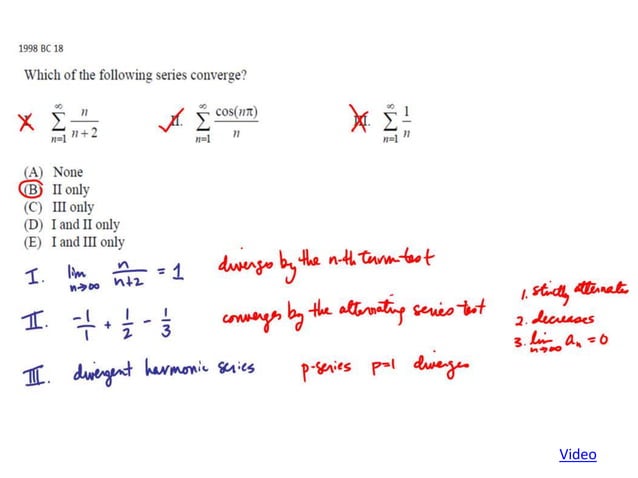 1998 BC 18
Which of the following series converge?
I. ∞ ∑ n=1 n/(n + 2) II. ∞ ∑ n=1 cos(nπ)/n III. ∞ ∑ n=1 1/n
(A) None
(B) II only
(C) III only
(D) I and II only
(E) I and III only
I. lim n→∞ n/(n+2) = 1 diverges by the n-th term test
II. -1/1 + 1/2 - 1/3 converges by the alternating series test
1. strictly alternates
2. decreases
3. lim n→∞ an = 0
III. divergent harmonic series p-series p=1 diverges
Video